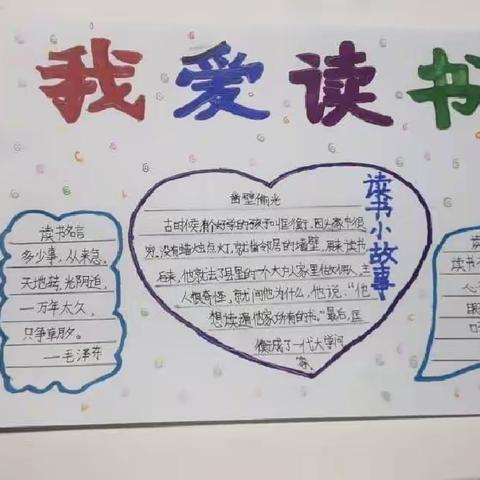 我爱读书
读书名言
多少事，从来急，
天地转，光阴迫，
一万年太久，
只争朝夕。
——毛泽东
读书小故事
凿壁偷光
古时候有个好学的孩子叫匡衡，因为家中很
穷，没有蜡烛点灯，就凿邻居的墙壁，用来读书。
后来，他就去了县里的一个大户人家里做佣人，主
人很奇怪，就问他为什么，他说：“他
想读遍他家所有的书。”最后，匡
衡成了一代大学问
家。
读
读书
心
眼
口